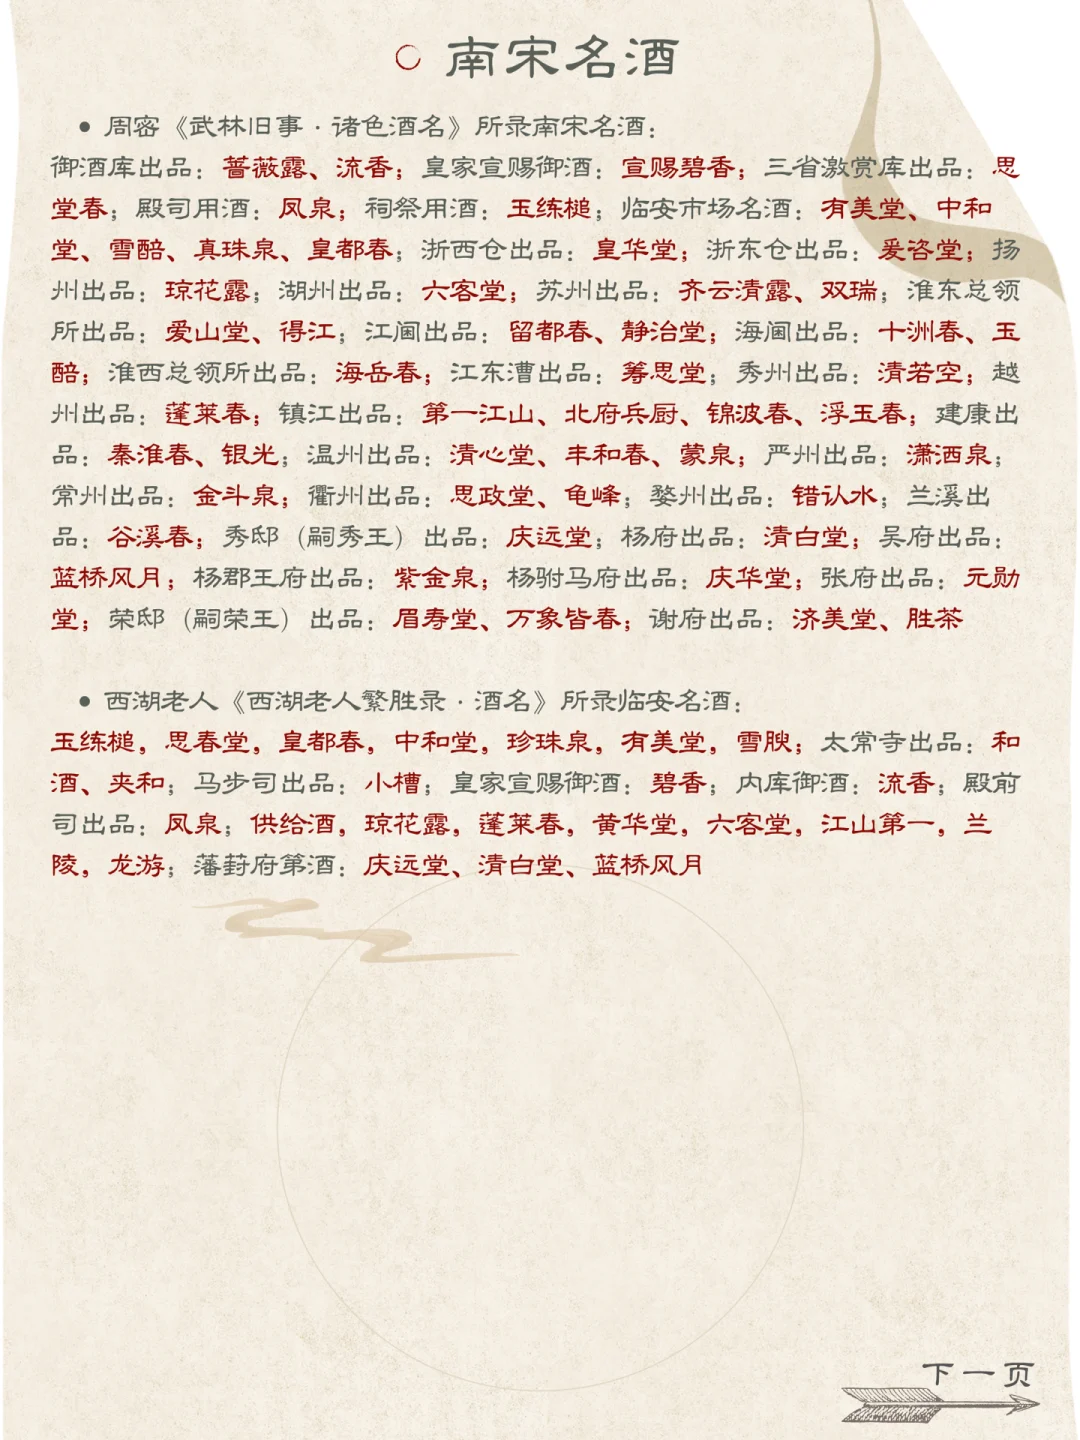 南宋名酒
• 周密《武林旧事·诸色酒名》所录南宋名酒：
御酒库出品：蔷薇露、流香；皇家宣赐御酒：宣赐碧香；三省激赏库出品：思
堂春；殿司用酒：凤泉；祠祭用酒：玉练槌；临安市场名酒：有美堂、中和
堂、雪醅、真珠泉、皇都春；浙西仓出品：皇华堂；浙东仓出品：爰咨堂；扬
州出品：琼花露；湖州出品：六客堂；苏州出品：齐云清露、双瑞；淮东总领
所出品：爱山堂、得江；江阃出品：留都春、静治堂；海阃出品：十洲春、玉
醅；淮西总领所出品：海岳春；江东漕出品：筹思堂；秀州出品：清若空；越
州出品：蓬莱春；镇江出品：第一江山、北府兵厨、锦波春、浮玉春；建康出
品：秦淮春、银光；温州出品：清心堂、丰和春、蒙泉；严州出品：潇洒泉；
常州出品：金斗泉；衢州出品：思政堂、龟峰；婺州出品：错认水；兰溪出
品：谷溪春；秀邸（嗣秀王）出品：庆远堂；杨府出品：清白堂；吴府出品：
蓝桥风月；杨郡王府出品：紫金泉；杨驸马府出品：庆华堂；张府出品：元勋
堂；荣邸（嗣荣王）出品：眉寿堂、万象皆春；谢府出品：济美堂、胜茶
• 西湖老人《西湖老人繁胜录·酒名》所录临安名酒：
玉练槌，思春堂，皇都春，中和堂，珍珠泉，有美堂，雪腴；太常寺出品：和
酒、夹和；马步司出品：小槽；皇家宣赐御酒：碧香；内库御酒：流香；殿前
司出品：凤泉；供给酒，琼花露，蓬莱春，黄华堂，六客堂，江山第一，兰
陵，龙游；藩葑府第酒：庆远堂、清白堂、蓝桥风月
下一页